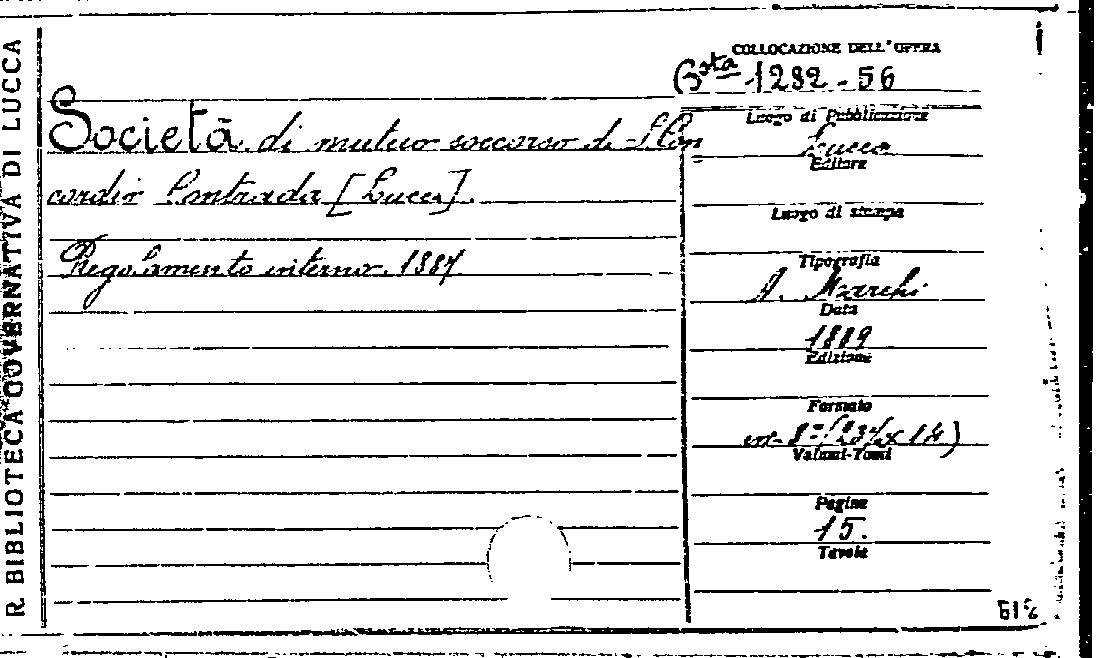 R. BIBLIOTECA GOVERNATIVA DI LUCCA
COLLOCAZIONE DELL'OPERA
Bsta 1282-56
Società di mutuo soccorso di S.
Contrada [Lucca].
Regolamento interno. 1887
Luogo di Pubblicazione
Lucca
Editore
Luogo di stampa
Tipografia
A. Marchi
Data
1889
Edizione
Formato
in-8º (23½ x 14)
Volumi-Tomi
Pagine
15.
Tavole